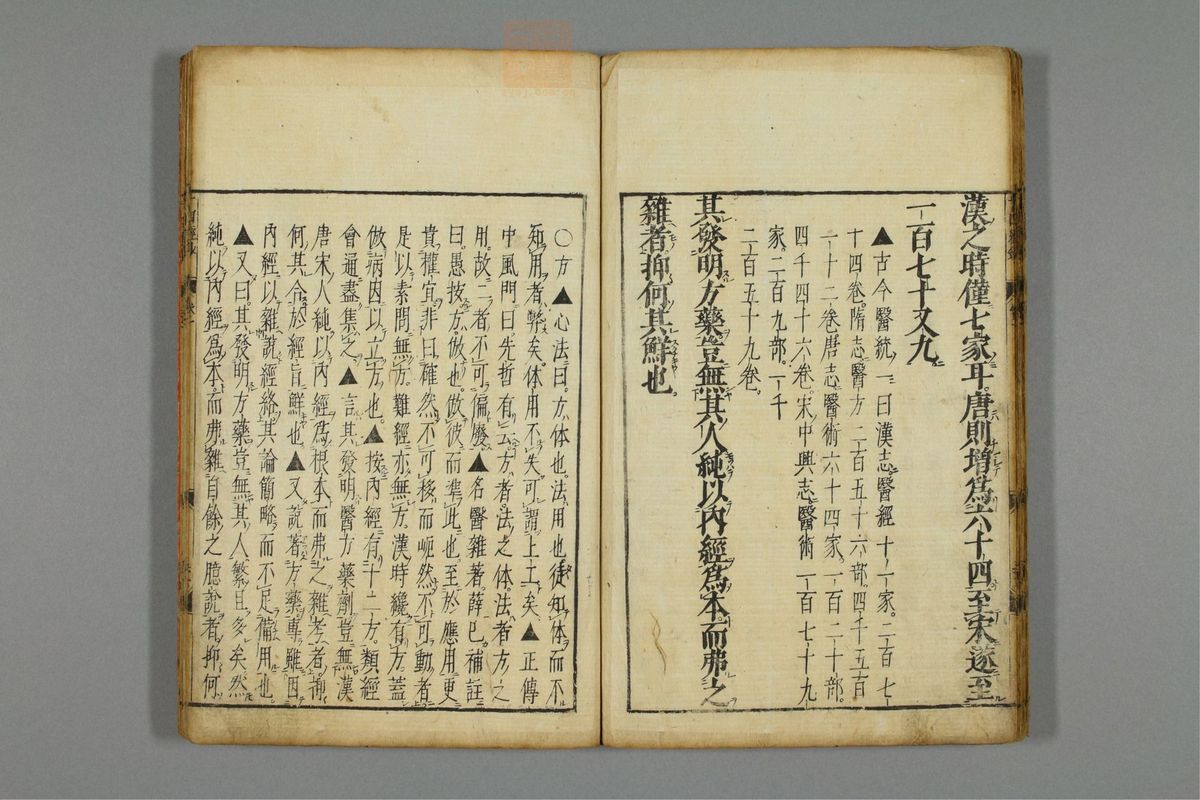 漢之時僅七家耳唐則增爲八十四至宋遂至
一百七十又九
▲古今醫統一曰漢志醫經十一家二百七
十四卷隋志醫方二百五十六部四千五百
一十二卷唐志醫術六十四家一百二十部
四千四十六卷宋中興志醫術一百七十九
家二百九部一千
二百五十九卷
其發明方藥豈無其人純以內經爲本而弗之
雜者抑何其鮮也
〇方▲心法曰方体也法用也徒知体而不
知用者弊矣体用不失可謂上工矣▲正傳
中風門曰先哲有云方者法之体法者方之
用故二者不可偏廢▲名醫雜著薛己補註
曰愚按方倣也倣彼而準此也至於應用更
貴權宜非曰確然不可移而岋然不可動者
是以素問無方難經亦無方漢時纔有方蓋
倣病因以立方也▲按內經有十二方類經
會通盡集之▲言其發明醫方藥劑豈無漢
唐宋人純以內經爲根本而弗之雜考者抑
何其合於經旨鮮也▲又說著方藥專雖因
內經以雜說經絡其論簡略而不足備用也
▲又曰其發明方藥豈無其人繁且多矣然
純以內經爲本而弗雜自餘之臆說者抑何